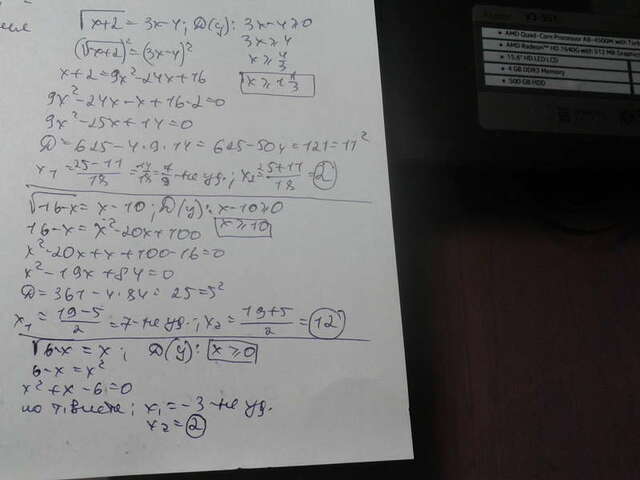 √x+2 = 3x-4; D(y): 3x-4≥0
(√x+2)² = (3x-4)²
3x≥4
x≥4/3
x+2=9x²-24x+16
x≥1 1/3
9x²-24x-x+16-2=0
9x²-25x+14=0
D=625-4·9·14=625-504=121=11²
x₁=25-11/18=14/18=7/9-не уд.; x₂=25+11/18=2
√16-x=x-10; D(y): x-10≥0
16-x=x²-20x+100
x≥10
x²-20x+x+100-16=0
x²-19x+84=0
D=361-4·84=25=5²
x₁=19-5/2=7-не уд.; x₂=19+5/2=12
√6-x=x; D(y): x≥0
6-x=x²
x²+x-6=0
по т. Виета; x₁=-3-не уд.
x₂=2
AMD Quad-Core Processor A8-4500M with Turb
AMD Radeon™ HD 7640G with 512 MB Graphic
15.6" HD LED LCD
4 GB DDR3 Memory
500 GB HDD